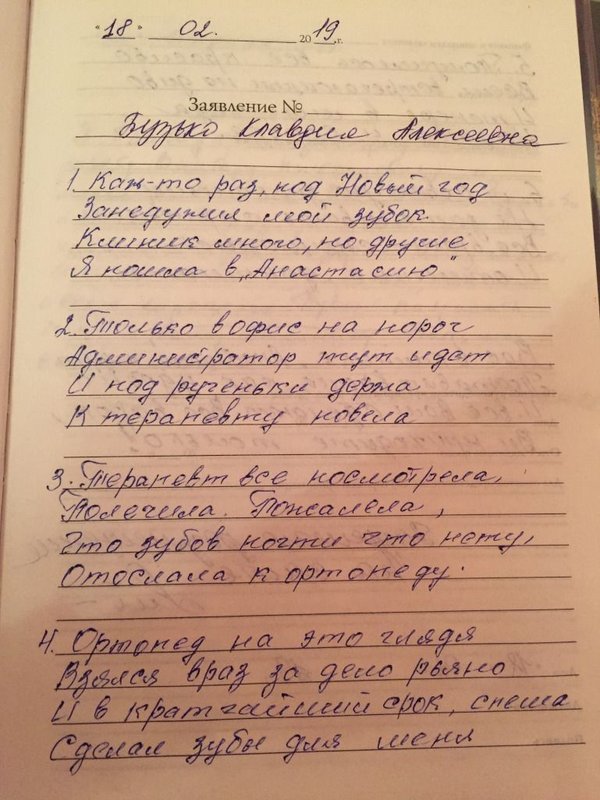 "18" 02. 2019 г.
Заявление №
Бузько Клавдия Алексеевна
1. Как-то раз, под Новый год
Занедужил мой зубок.
Клиник много, но другие
Я пошла в „Анастасию"
2. Только в офис на порог
Администратор тут идет
И под рученьки держа
К терапевту повела
3. Терапевт все посмотрела,
Полечила. Пожалела,
Что зубов почти что нету,
Отослала к ортопеду.
4. Ортопед на это глядя
Взялся враз за дело рьяно
И в кратчайший срок, спеша
Сделал зубы для меня